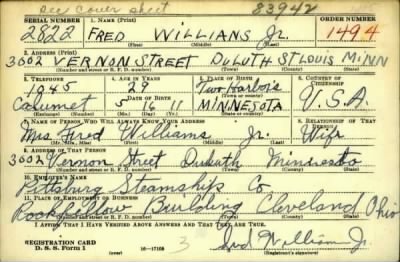 See cover sheet 83942
SERIAL NUMBER 1. NAME (Print) ORDER NUMBER
2822 FRED WILLIANS Jr. 1494
(First) (Middle) (Last)
2. ADDRESS (Print)
3002 VERNON STREET DULUTH ST LOUIS MINN
(Number and street or R. F. D. number) (Town) (County) (State)
3. TELEPHONE 4. AGE IN YEARS 5. PLACE OF BIRTH 6. COUNTRY OF CITIZENSHIP
1045 29 Two Harbors
DATE OF BIRTH (Town or county)
Calumet 5 11 MINNESOTA U.S.A.
(Exchange) (No.) (Mo.) (Day) (Yr.) (State or country)
7. NAME OF PERSON WHO WILL ALWAYS KNOW YOUR ADDRESS 8. RELATIONSHIP OF THAT PERSON
Mrs. Fred Williams Jr. Wife
(Mr., Mrs., Miss) (First) (Middle) (Last)
9. ADDRESS OF THAT PERSON
3002 Vernon Street Duluth Minnesota
(Number and street or R. F. D. number) (Town) (County) (State)
10. EMPLOYER'S NAME
Pittsburg Steamship Co
11. PLACE OF EMPLOYMENT OR BUSINESS
Rockfellow Building Cleveland Ohio
(Number and street or R. F. D. number) (Town) (County) (State)
I AFFIRM THAT I HAVE VERIFIED ABOVE ANSWERS AND THAT THEY ARE TRUE.
REGISTRATION CARD
D. S. S. Form 1 16—17105 3 Fred Williams Jr.